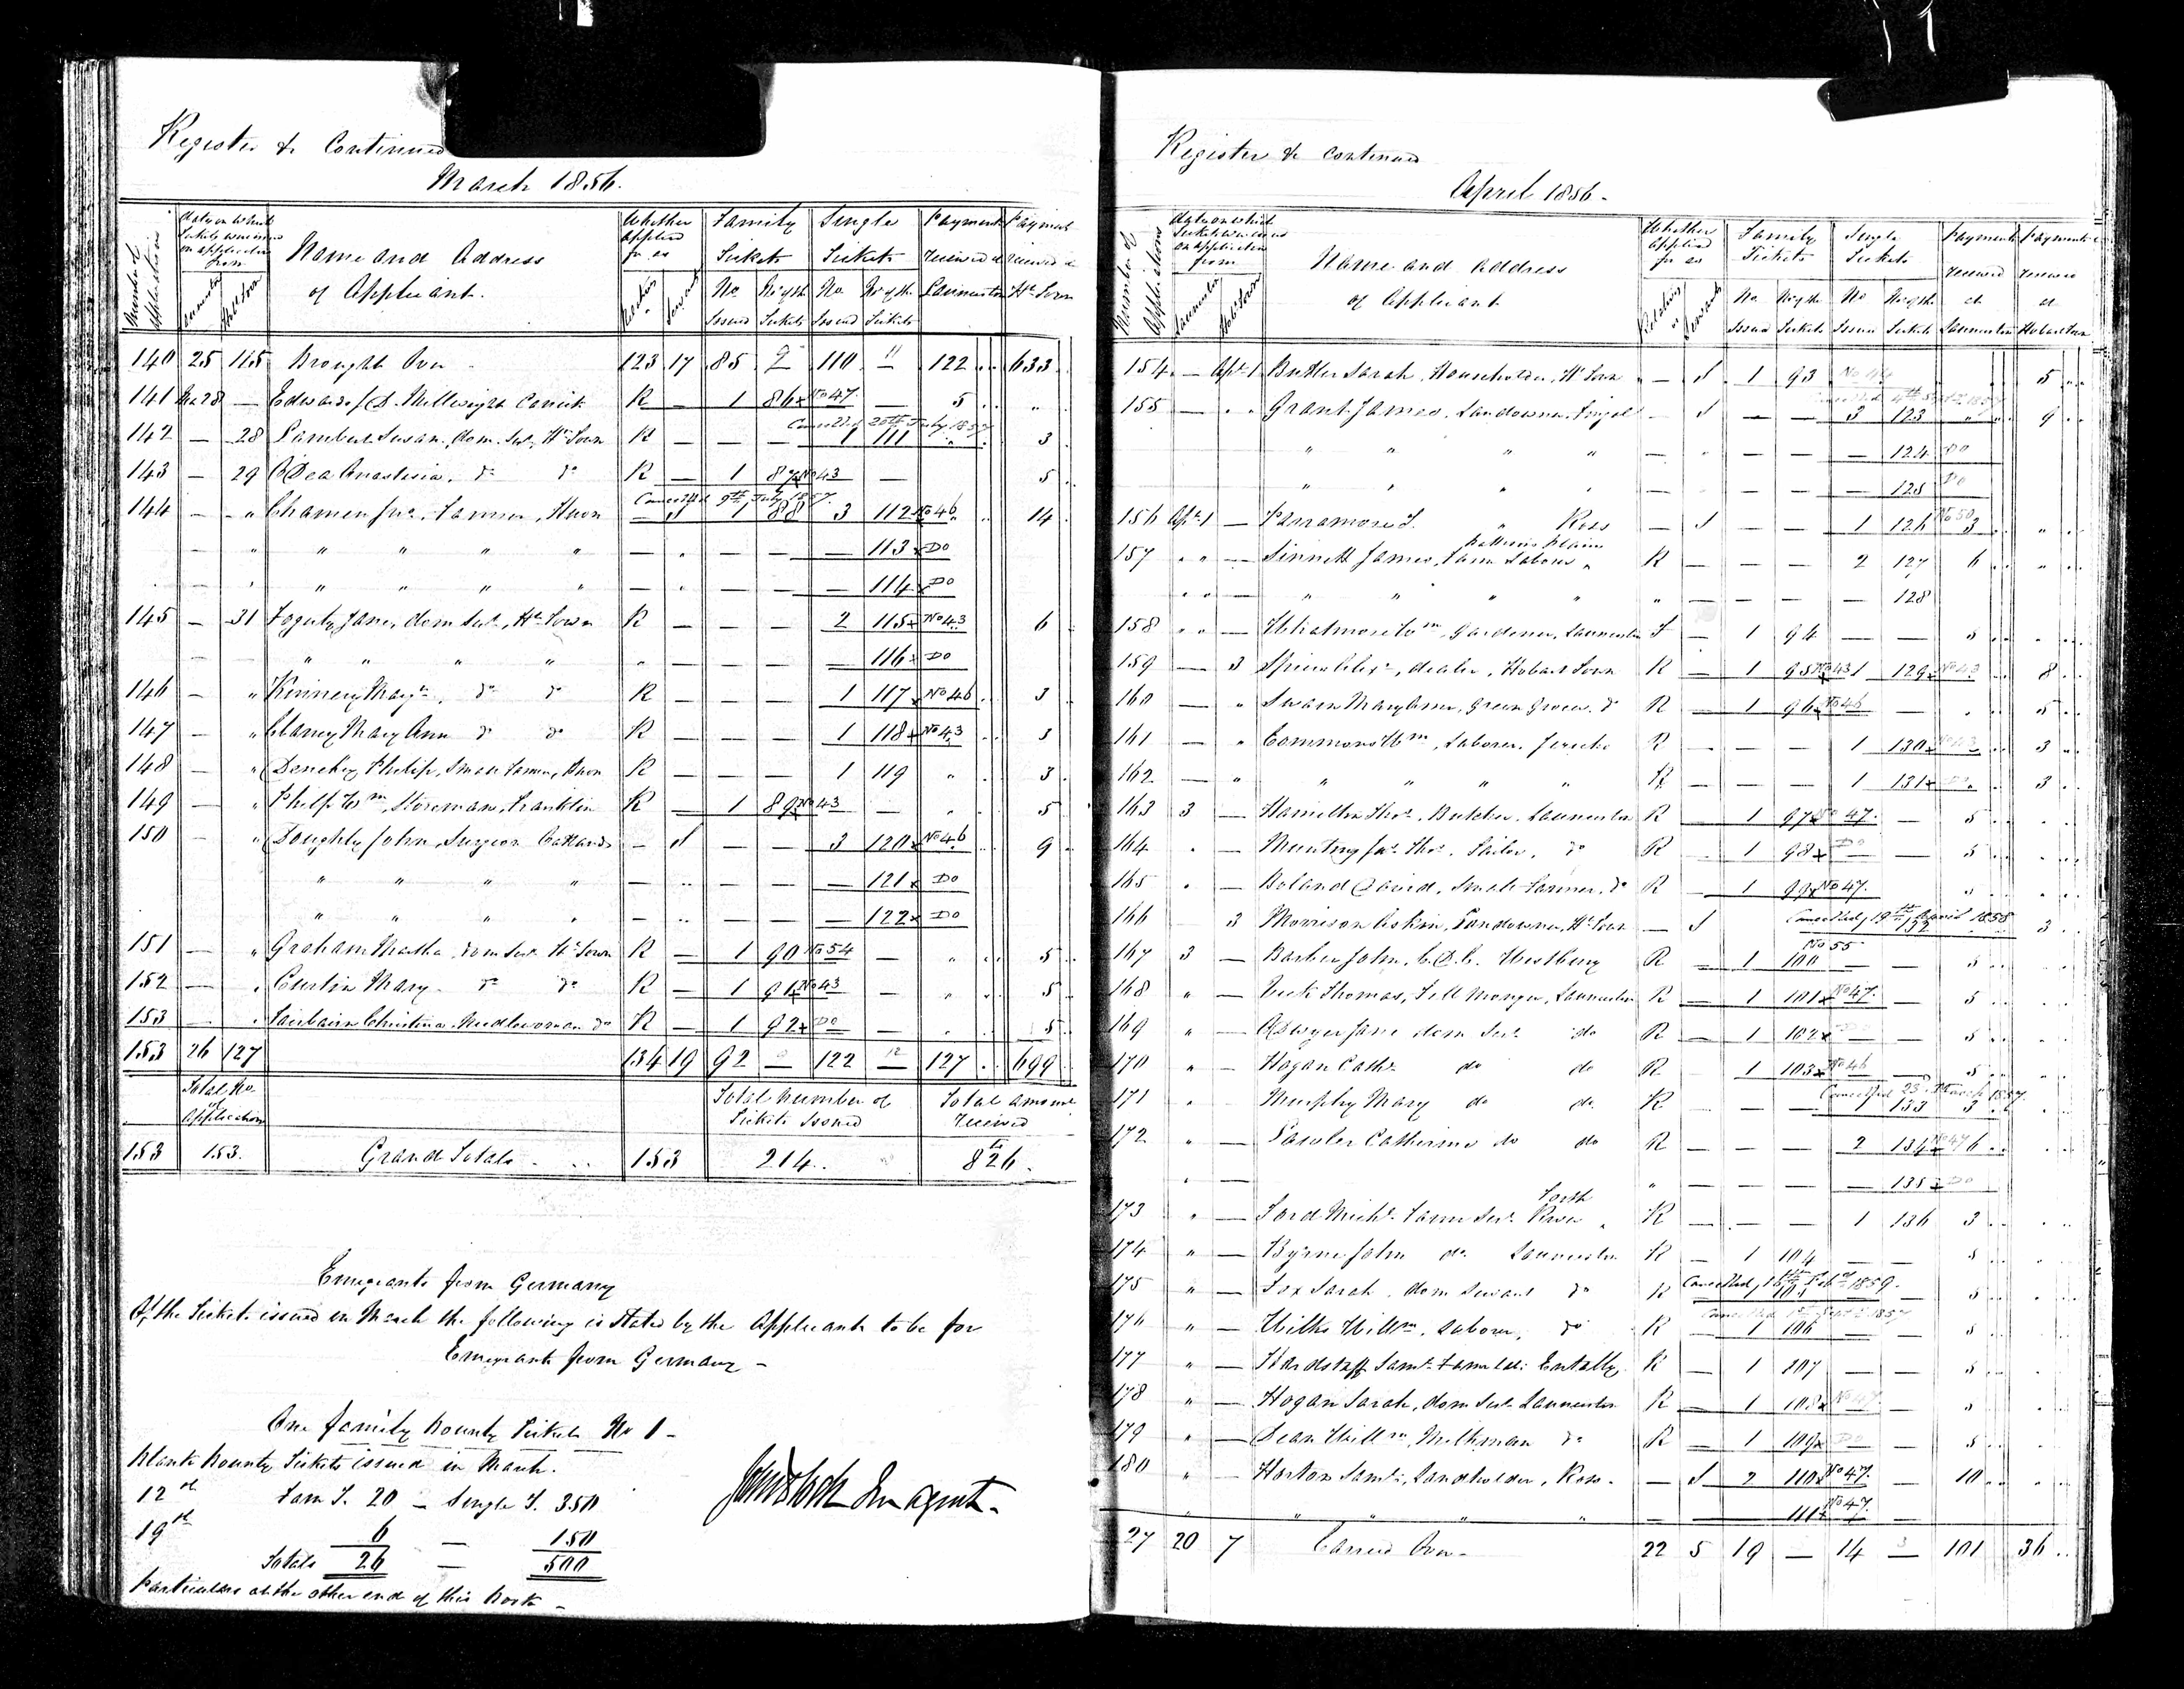 Register &c Continued
March 1856.
Number of Applications
Date on which Tickets were issued on application from
Launceston
Hob. Town
Name and Address of Applicant.
Whether applied for as
Relatives
Servants
Family Tickets
No. Issued
No. of the Tickets
Single Tickets
No. Issued
No. of the Tickets
Payments received at Launceston
Payments received at Ht. Town
140 25 115 Brought Over 123 17 85 " 110 " — 122 .. 633 ..
141 28 — Edwards Millwright Carrick R — 1 86x No 47. 5 .. "
Cancelled 20th July 1857
142 — 28 Lambert Susan, dom. Sert. Ht. Town R — — — 1 111 " 3
143 — 29 O'Dea Anastasia, do do R — 1 87x No 43 — 5
Cancelled 9th July 1857.
144 — " Chamen Jno. Farmer, Huon — S 1 88 3 112 No 46 14
" " " " — — — — 113x Do
" " " " — — — — 114x Do
145 — 31 Fogerty Jane, dom Sert., Ht. Town R — — — 2 115x No 43 6
" " " " — — — — 116x Do
146 — " Kinnery Margt. do do R — — — 1 117x No 46 3
147 — " Clancy Mary Ann do do R — — — 1 118x No 43 3
148 — " Philip, Small Farmer, Huon R — — — 1 119 " 3
149 — " Phelp Wm, Storeman, Franklin R — 1 89x No 43 — 5
150 — " Doughty John, Surgeon Oatlands — S — — 3 120x No 46 9
" " " " — — — — 121x Do
" " " " — — — — 122x Do
151 — " Graham Martha, dom Sert. Ht. Town R — 1 90 No 54 — " 5
152 — " Curtin Mary do do R — 1 91x No 43 — " 5
153 — " Fairbairn Christina Needlewoman do R — 1 92x Do — 5
153 26 127 134 19 92 — 122 — 127 .. 699
Total No of Application
Total Number of Tickets Issued
Total Amount Received
153 153. Grand Totals . .. 153 214.. 826.
Emigrants from Germany
Of the Tickets issued in March the following is stated by the Applicants to be for
Emigrants from Germany —
One family bounty Ticket No 1 —
Blank bounty Tickets issued in March.
12th Fam T. 20 — Single T. 350
19th 6 — 150
Totals 26 — 500
Particulars at the other end of this book —
Im Agent.
Register &c continued
April 1856.
Number of Applications
Date on which Tickets were issued on application from
Launceston
Hob. Town
Name and Address of Applicant
Whether applied for as
Relatives or
Servants
Family Tickets
No. Issued
No. of the Tickets
Single Tickets
No. Issued
No. of the Tickets
Payments received at Launceston
Payments received at Hobart Town
154 — Apl. 1 Butler Sarah, Householder, Ht. Town — S 1 93 No 44 5
Cancelled 1857
155 — " Grant James, Landowner, Fingal — S — — 3 123 " 9
" " " " — — — — 124 Do
" " " " — — — — 125 Do
156 Apl. 1 — Parramore T. " Ross — S — — 1 126 No 50 3
Plains
157 " — Sinnett James, Farm Laborer " R — — — 2 127 6
" — " " " " — — — — 128
158 " — Whatmore Wm, Gardener, Launceston — 1 94 — — 5
159 — 3 dealer, Hobart Town R — 1 95x No 43 1 129x No 43 8
160 — " Swain Mary Ann, Green Grocer, do R — 1 96x No 46 — 5
161 — " Emmons Wm, Laborer, Jericho R — — — 1 130x No 43 3
162 — " " " " " R — — — 1 131x Do 3
163 3 — Hamilton Thos. Butcher, Launceston R 1 97x No 47. — 5
164 " — Thos. do R 1 98x Do — 5
165 " — Boland David, Small Farmer, do R 1 99x No 47. "
Cancelled, 19th April 1858
166 3 Morrison Askin, Landowner, Ht. Town — S 132 3
No 55
167 3 — Barber John, Westbury R — 1 100 — — 5
168 " — Thomas, Fell Monger, Launceston R — 1 101x No 47. — 5
169 " — Jane dom Sert. do R — 1 102x Do — 5
170 " — Hogan Cathe. do do R 1 103x No 46 — 5
Cancelled 23 March 1857
171 " Murphy Mary do do. R — — — 1 133 3
172 " — Catherine do do R — — — 2 134x No 47 6
" — " — — — — 135x Do
Forth
173 " — Ford Michl. Farm Sert. River " R — — — 1 136 3
174 " — Byrne John do Launceston R — 1 104 — — 5
Cancelled, 16th Feb 1859.
175 " — Fox Sarah, dom Servant do R 105 — 5
Cancelled 1st Sept 1857
176 " — Wilks Willm. Laborer, do R — 1 106 — — 5
177 " — Hardstaff Saml. Entally. R — 1 107 — — 5
178 " — Hogan Sarah, dom Sert. Launceston R — 1 108x No 47 — 5
179 " — Dean Willm, Milkman do R — 1 109x Do — 5
180 " — Horton Saml., Landholder, Ross. — S 2 110x No 47. — 10
" " " " — — 111x No 47
27 20 7 Carried Over — 22 5 19 — 14 — 101 36 ..